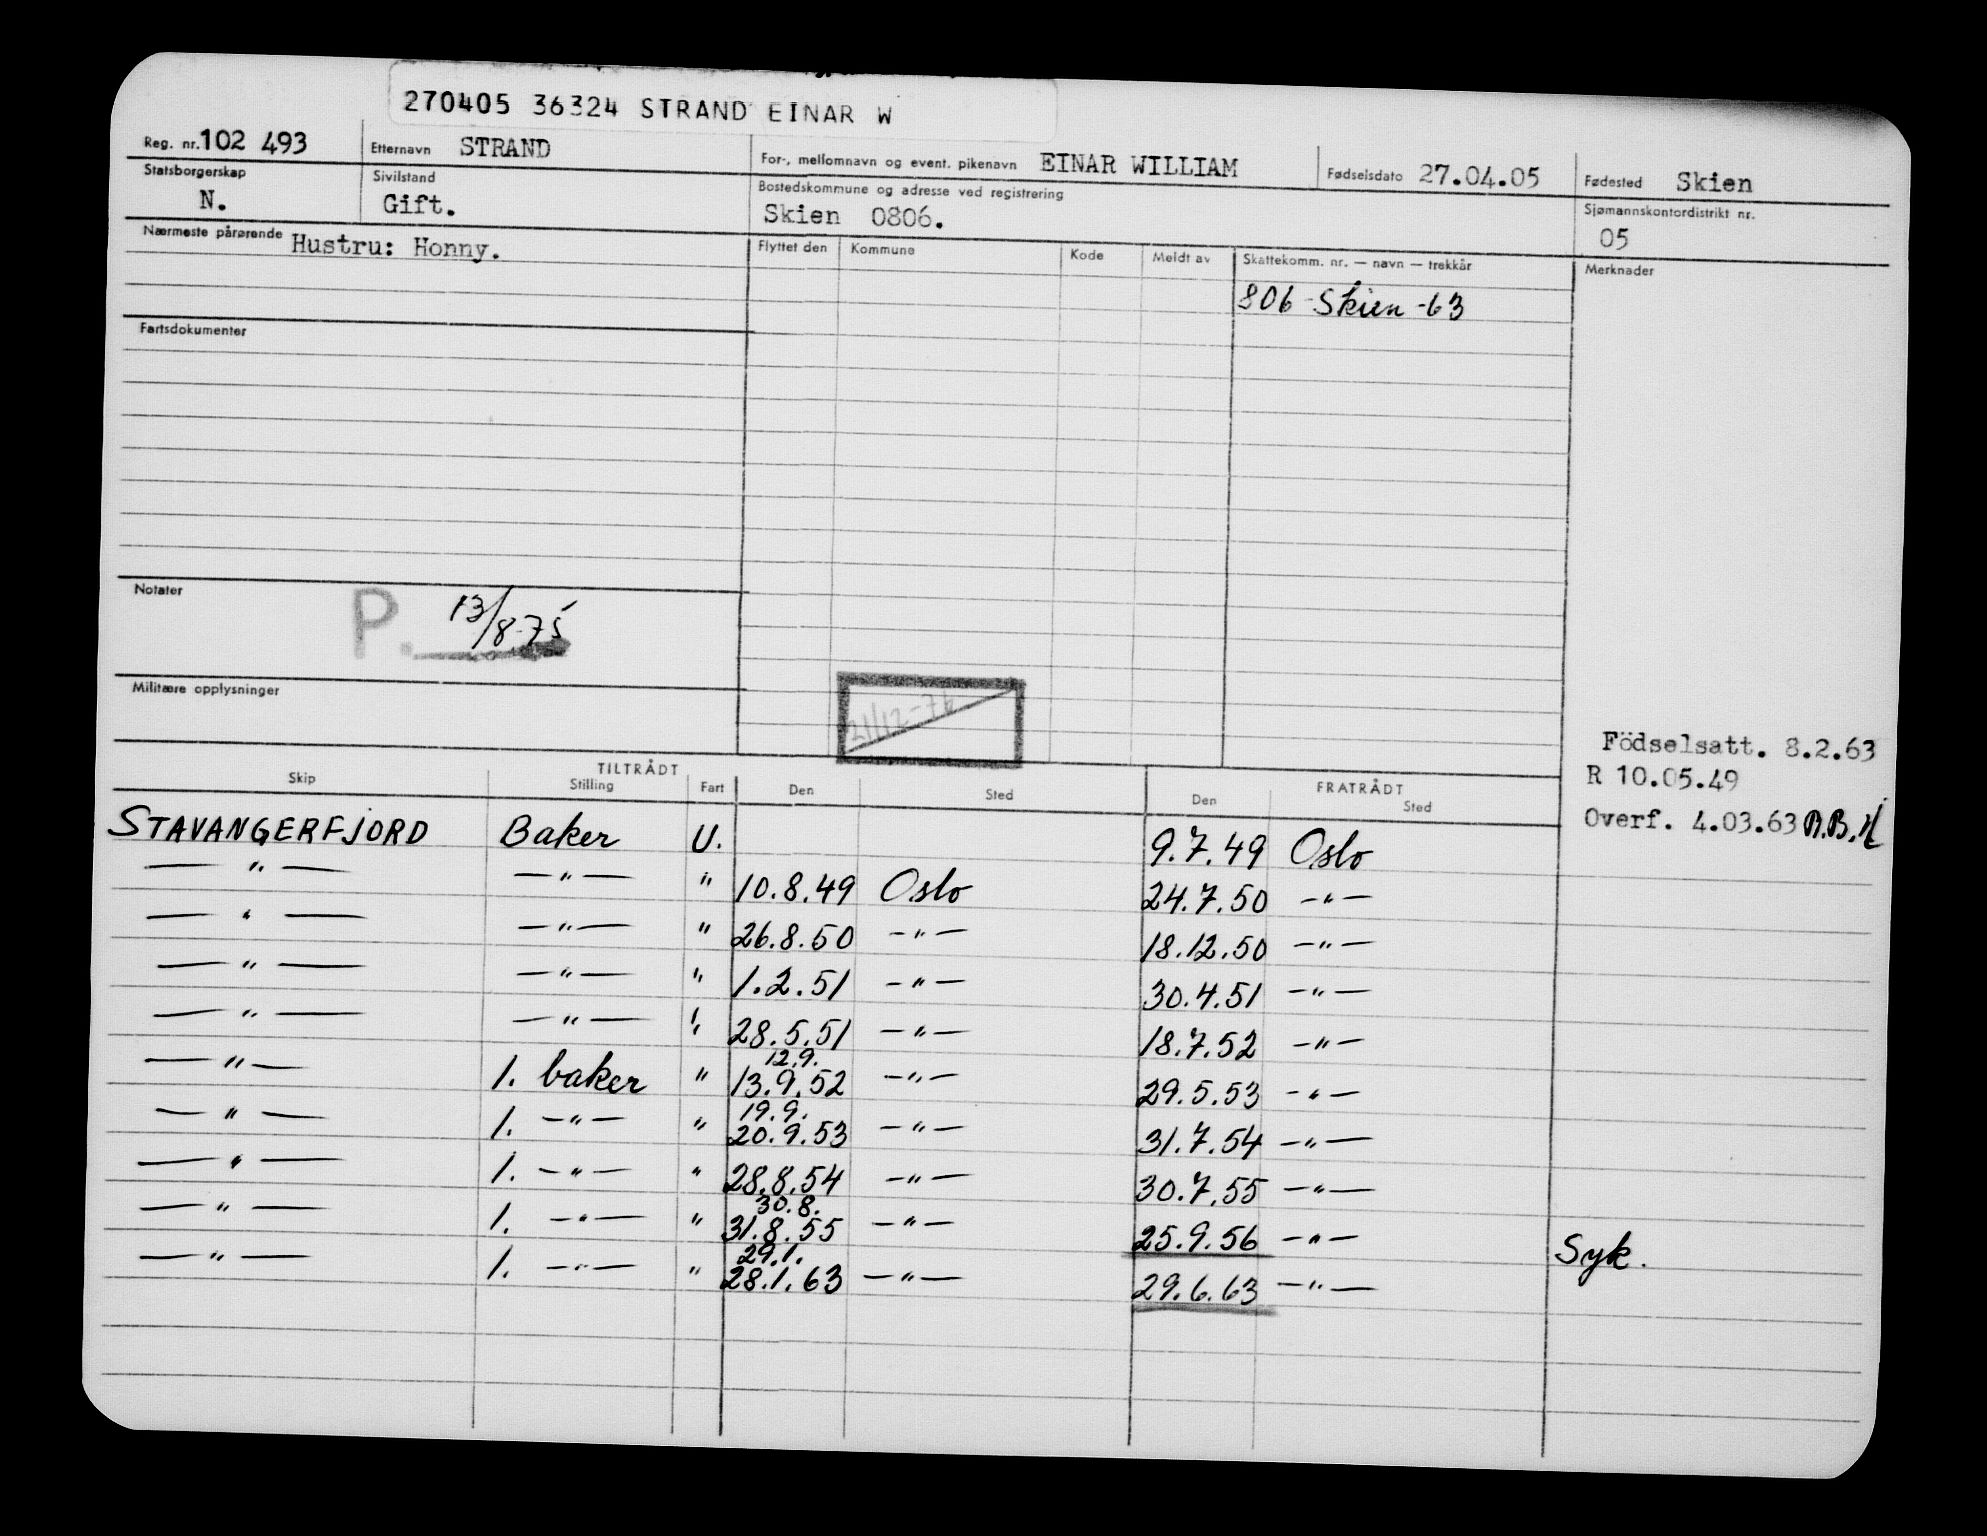 270405 36324 STRAND EINAR W
Reg. nr. 102 493 Etternavn STRAND For-, mellomnavn og event. pikenavn EINAR WILLIAM Fødselsdato 27.04.05 Fødested Skien
Statsborgerskap Sivilstand Bostedskommune og adresse ved registrering Sjømannskontordistrikt nr.
N. Gift. Skien 0806. 05
Nærmeste pårørende Hustru: Honny. Flyttet den Kommune Kode Meldt av Skattekomm. nr. — navn — trekkår Merknader
806 Skien -63
Fartsdokumenter
Notater
P. 13/8-75
21/12-76
Militære opplysninger
Födselsatt. 8.2.63
R 10.05.49
Overf. 4.03.63
TILTRÅDT FRATRÅDT
Skip Stilling Fart Den Sted Den Sted
STAVANGERFJORD Baker U. 9.7.49 Oslo
—"— —"— " 10.8.49 Oslo 24.7.50 —"—
—"— —"— " 26.8.50 —"— 18.12.50 —"—
—"— —"— " 1.2.51 —"— 30.4.51 —"—
—"— —"— " 28.5.51 —"— 18.7.52 —"—
12.9.
—"— 1. baker " 13.9.52 —"— 29.5.53 —"—
19.9.
—"— 1. —"— " 20.9.53 —"— 31.7.54 —"—
—"— 1. —"— " 28.8.54 —"— 30.7.55 —"—
30.8.
—"— 1. —"— " 31.8.55 —"— 25.9.56 —"— Syk.
29.1.
—"— 1. —"— " 28.1.63 —"— 29.6.63 —"—